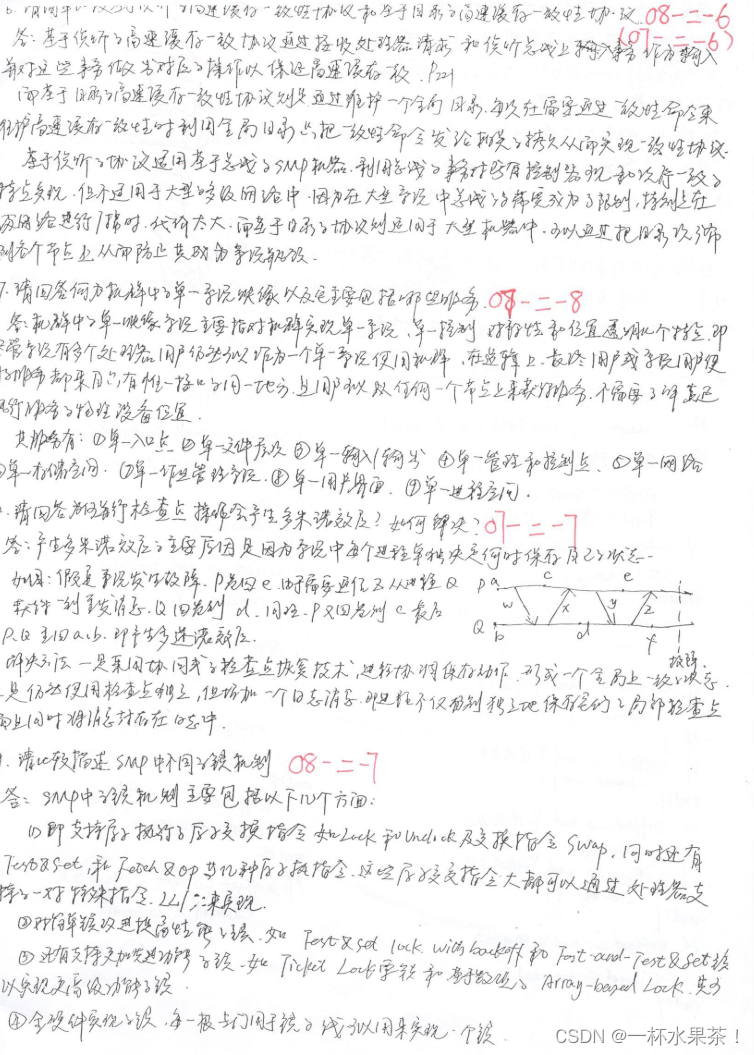 6. 请简单比较基于侦听的高速缓存一致性协议和基于目录的高速缓存一致性协议. 08-二-6
(07-二-6)
答: 基于侦听的高速缓存一致协议通过接收处理器请求和侦听总线上的事务作为输入
并对这些事务做出对应的操作以保证高速缓存一致. P221
而基于目录的高速缓存一致性协议则是通过维护一个全局目录. 每次在需要通过一致性命令来
维护高速缓存一致性时利用全局目录把一致性命令发给相关的 从而实现一致性协议.
基于侦听的协议适用基于总线的SMP机器. 利用总线的事务对所有控制器可见
特点实现. 但不适用于大型 网络中. 因为在大系统中总线的带宽成为了限制, 特别是在
网络进行广播时. 代价太大. 而基于目录的协议则适用于大型机器中. 可以通过把目录
到各个节点上从而防止其成为系统瓶颈.
7. 请回答何为机群中的单一系统映像以及它主要包括哪些服务. 08-二-8
答: 机群中的单一映像系统主要指对机群实现单一系统、单一控制 对称性和位置透明几个特点. 即
尽管系统有多个处理器. 用户仍然可以作为一个单一系统使用机群. 在逻辑上. 最终用户或系统用户使
的服务都来自只有唯一接口的同一地方. 且用户可以从任何一个节点上来获得服务. 不需要了解真正
执行服务的物理设备位置.
其服务有: ①单一入口点 ②单一文件层次 ③单一输入/输出 ④单一管理和控制点. ⑤单一网络
单一存储空间. ⑦单一作业管理系统. ⑧单一用户界面. ⑨单一进程空间.
请回答为何 检查点操作会产生多米诺效应? 如何解决? 07-二-7
答: 产生多米诺效应的主要原因是因为系统中每个进程单独决定何时保存自己的状态.
如图: 假定系统发生故障. P卷回e. 由于需要进行Z从进程Q P a c e
重发消息. Q回卷到d. 同理. P又回卷到c 最后 w x y z
P.Q至回a.b. 即产生多米诺效应. Q b d f
故障.
解决方法 一是采用协同式的检查点恢复技术, 进程协调保存动作. 形成一个全局上一致的状态.
是仍然使用检查点独立, 但增加一个日志消息. 即进程不仅 独立地保存它们的局部检查点
而且同时将消息 存在日志中.
请比较描述SMP中不同的锁机制 08-二-7
答: SMP中的锁机制主要包括以下几个方面:
①即支持原子执行的原子交换指令 如Lock和Unlock及交换指令Swap, 同时还有
Test&Set, 和Fetch&op 等几种原子 指令. 这些原子交换指令大都可以通过处理器支
持的一对特殊指令. LL/ 来实现.
②对简单锁改进提高性能的锁. 如 Test&set lock with backoff 和 Test-and-Test&Set锁
③还有支持更加先进功能的锁. 如 Ticket Lock 和基于数组的 Array-based Lock.
以实现更高级功能的锁.
④全硬件实现的锁. 每一根专门用于锁的线可以用来实现一个锁.
CSDN @一杯水果茶!